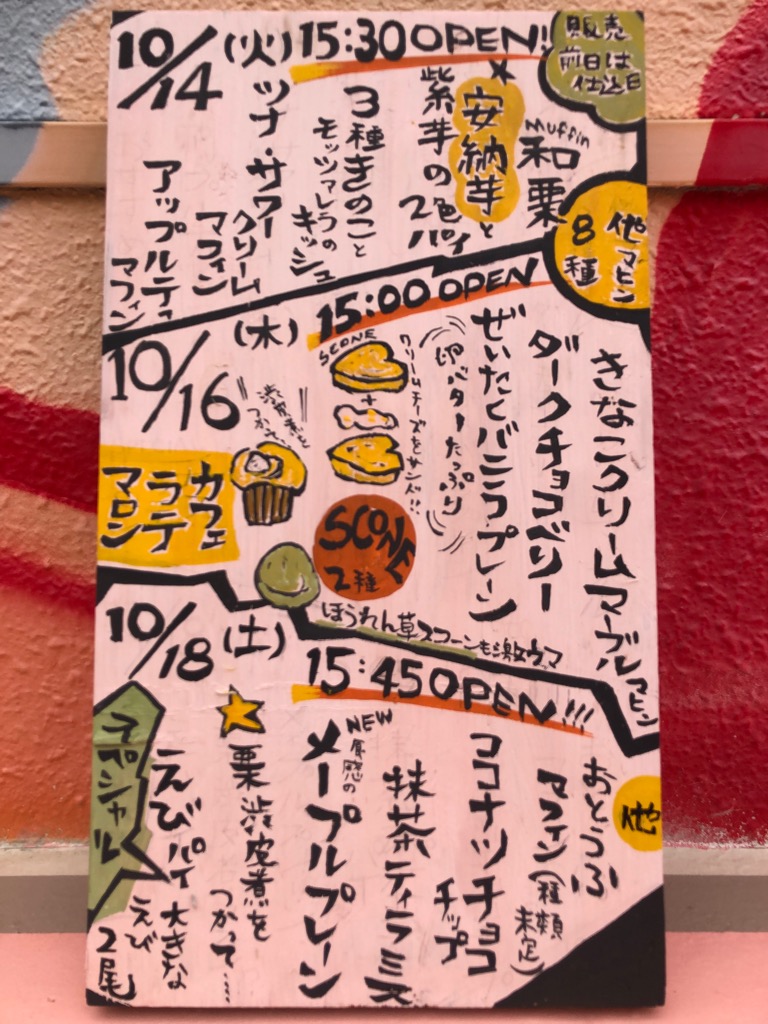 10/14(火)15:30OPEN!!
販売
前日は
仕込日
Muffin
和栗
安納芋と
紫芋の2色パイ
3種きのこと
モッツァレラの
キッシュ
ツナ・サワー
クリーム
マフィン
アップルティ
マフィン
他マヒン
8種
10/16(木)15:00OPEN
きなこクリームマーブルマヒン
ダークチョコベリー
ぜいたくバニラプレーン
(卵バターたっぷり)
クリームチーズをサンド!!
SCONE
+
渋皮煮を
つかって
カフェ
ラテ
マロン
SCONE
2種
ほうれん草スコーンも激ウマ
10/18(土)15:45OPEN!!!
他
おとうふ
マフィン(種類
未定)
ココナツチョコ
チップ
抹茶ティラミス
NEW
食感の
メープルプレーン
栗渋皮煮を
つかって……
スペシャル
えびパイ大きな
えび
2尾